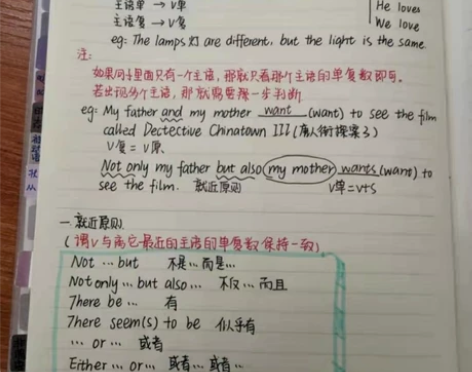 主语单 → V单
He loves
主语复 → V复
We love
eg: The lamps 灯 are different, but the light is the same
注:
如果句子里面只有一个主语, 那就只看那个主语的单复数即可。
若出现多个主语, 那就需要进一步判断
eg: My father and my mother want (want) to see the film
called Dectective Chinatown III (唐人街探案3)
V复 = V原
Not only my father but also (my mother) wants (want) to
see the film. 就近原则 V单=V+s
一. 就近原则.
(谓V与离它最近的主语的单复数保持一致)
Not … but 不是…而是…
Not only … but also … 不仅…而且
There be … 有
There seem(s) to be 似乎有
… or … 或者
Either … or … 或者…或者…